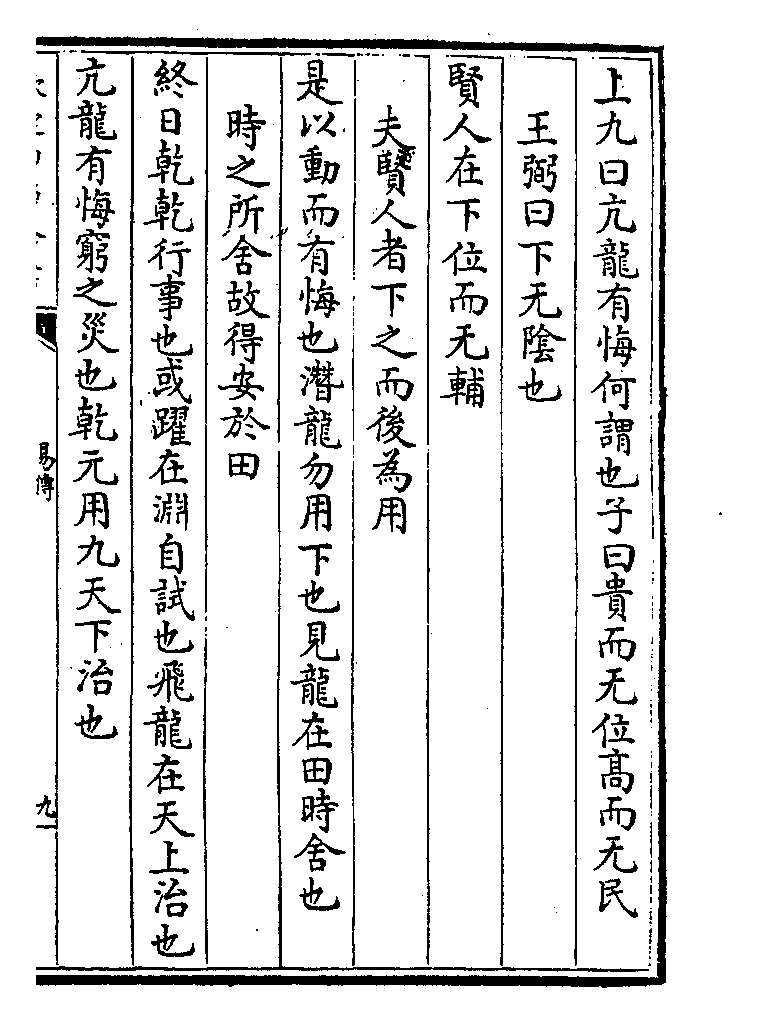 上九曰亢龍有悔何謂也子曰貴而无位髙而无民
王弼曰下无隂也
賢人在下位而无輔
夫賢人者下之而後為用
是以動而有悔也潛龍勿用下也見龍在田時舍也
時之所舍故得安於田
終日乾乾行事也或躍在淵自試也飛龍在天上治也
亢龍有悔窮之災也乾元用九天下治也
易傳
九